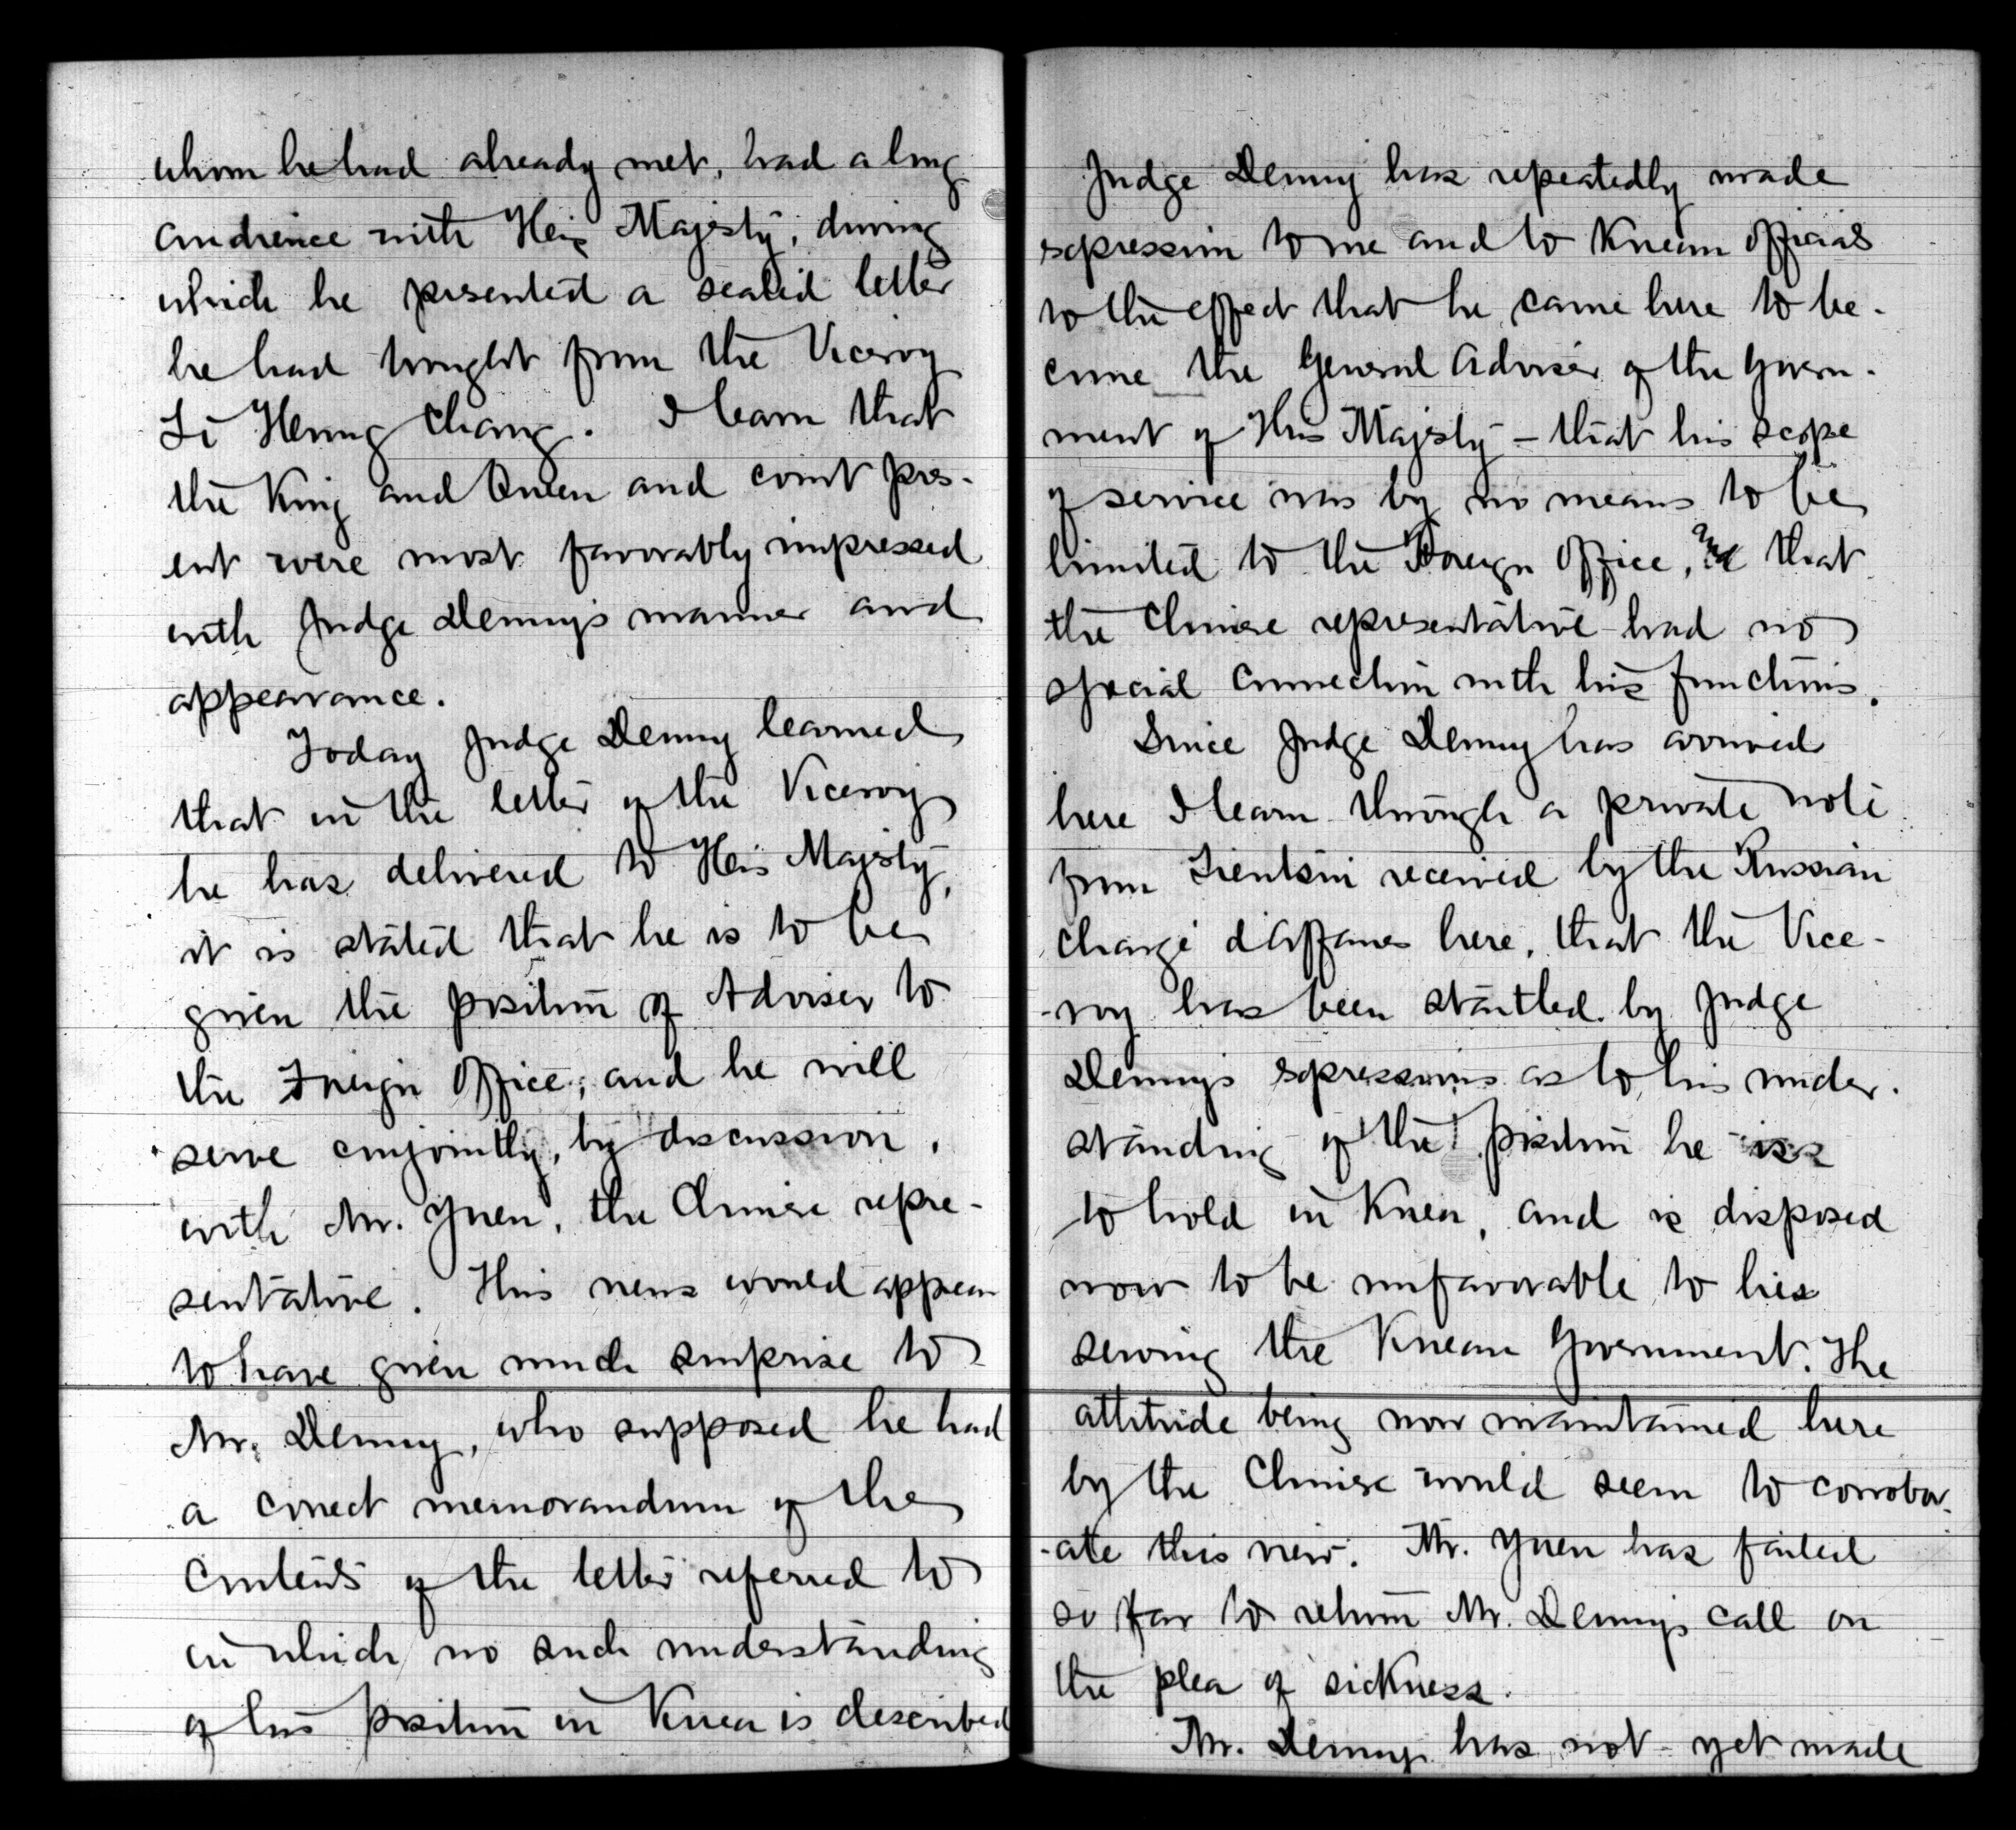 whom he had already met, had a long
audience with His Majesty, during
which he presented a sealed letter
he had brought from the Viceroy
Li Hung Chang. I learn that
the King and Queen and court pres-
ent were most favorably impressed
with Judge Denny's manner and
appearance.
Today Judge Denny learned
that in the letter of the Viceroy
he has delivered to His Majesty,
it is stated that he is to be
given the position of Adviser to
the Foreign Office, and he will
serve conjointly, by discussion,
with Mr. Yuen, the Chinese repre-
sentative. This news would appear
to have given much surprise to
Mr. Denny, who supposed he had
a correct memorandum of the
contents of the letter referred to
in which no such understanding
of his position in Korea is described
Judge Denny has repeatedly made
expression to me and to Korean officials
to the effect that he came here to be-
come the General Adviser of the Govern-
ment of His Majesty - that his scope
of service was by no means to be
limited to the Foreign Office, and that
the Chinese representative had no
special connection with his functions.
Since Judge Denny has arrived
here I learn through a private note
from Tientsin received by the Russian
Chargé d'Affaires here, that the Vice-
-roy has been startled by Judge
Denny's expressions as to his under-
standing of the position he is
to hold in Korea, and is disposed
now to be unfavorable to his
serving the Korean Government. The
attitude being now maintained here
by the Chinese would seem to corrobor-
-ate this view. Mr. Yuen has failed
so far to return Mr. Denny's call on
the plea of sickness.
Mr. Denny has not yet made